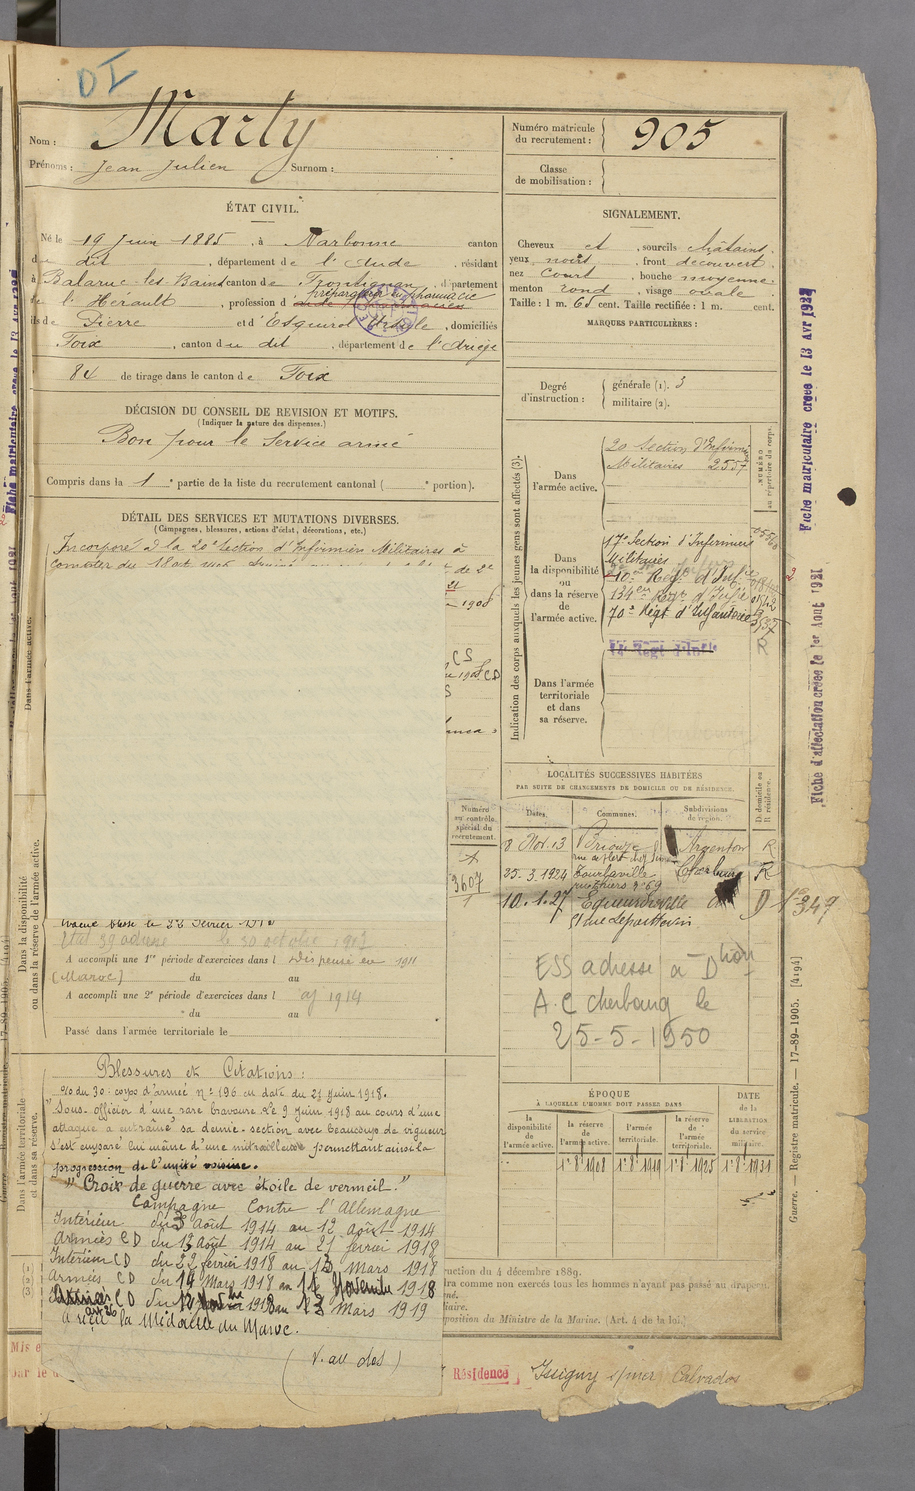 DI
Nom : Marty
Prénoms : Jean Julien Surnom :
Numéro matricule du recrutement : 905
Classe de mobilisation :
ÉTAT CIVIL.
Né le 19 Juin 1885, à Narbonne canton
du dit, département de l'Aude, résidant
à Balaruc-les-Bains canton de Frontignan, département
de l'Hérault, profession d préparateur en pharmacie
fils de Pierre et d'Esquirol, domiciliés
Foix, canton du dit, département de l'Ariège
84 de tirage dans le canton de Foix
SIGNALEMENT.
Cheveux et, sourcils châtains,
yeux noirs, front découvert,
nez court, bouche moyenne,
menton rond, visage ovale.
Taille : 1 m. 65 cent. Taille rectifiée : 1 m. cent.
MARQUES PARTICULIÈRES :
Degré d'instruction : générale (1). 3
militaire (2).
DÉCISION DU CONSEIL DE REVISION ET MOTIFS.
(Indiquer la nature des dispenses.)
Bon pour le Service armé
Compris dans la 1e partie de la liste du recrutement cantonal ( e portion).
DÉTAIL DES SERVICES ET MUTATIONS DIVERSES.
(Campagnes, blessures, actions d'éclat, décorations, etc.)
Incorporé à la 20e Section d'Infirmiers Militaires à
compter du
de 2e
1908
CS
Indication des corps auxquels les jeunes gens sont affectés (3).
NUMÉRO au répertoire du corps.
Dans l'armée active.
20 Section d'Infirmiers
Militaires 2557
Dans la disponibilité ou dans la réserve de l'armée active.
17e Section d'Infirmiers
Militaires
10e Régt d'Infie
134e Régt d'Infie
70e Régt d'Infanterie
R
Dans l'armée territoriale et dans sa réserve.
Fiche matriculaire créée le 13 Avr 1922
Fiche d'affectation créée le 1er Aout 1921
LOCALITÉS SUCCESSIVES HABITÉES
PAR SUITE DE CHANGEMENTS DE DOMICILE OU DE RÉSIDENCE.
Dates. Communes. Subdivisions de région. D. domicile ou R. résidence.
8 Nov. 13 Briouze Argentan R
25.3.1924 Tourlaville Cherbourg R
rue Thiers no 69
10.1.27 Equeurdreville D
Numéro au contrôle spécial du recrutement.
3607
ESS adresse à Dijon
A.C Cherbourg le
25-5-1950
A accompli une 1re période d'exercices dans l Dispensé en 1911
(Maroc) du au
A accompli une 2e période d'exercices dans l aj 1914
du au
Passé dans l'armée territoriale le
Dans l'armée active.
Dans la disponibilité ou dans la réserve de l'armée active.
Dans l'armée territoriale et dans sa réserve.
Blessures et Citations :
o/o du 30e corps d'armée No 196 en date du 21 Juin 1918.
"Sous-officier d'une rare bravoure. Le 9 Juin 1918 au cours d'une
attaque a entraîné sa demie-section avec beaucoup de vigueur
s'est emparé lui même d'une mitrailleuse permettant ainsi la
progression de l'unité voisine.
"Croix de guerre avec étoile de vermeil."
Campagne Contre l'Allemagne
Intérieur du 3 Août 1914 au 12 Août 1914
Armées CD du 13 Août 1914 au 21 février 1918
Intérieur CD du 22 février 1918 au 13 Mars 1918
Armées CD du 14 Mars 1918 au 11 Novembre 1918
CD du 12 1918 au 13 Mars 1919
a reçu la Médaille du Maroc.
(V. au dos)
ÉPOQUE
À LAQUELLE L'HOMME DOIT PASSER DANS
la disponibilité de l'armée active. la réserve de l'armée active. l'armée territoriale. la réserve de l'armée territoriale.
DATE de la LIBÉRATION du service militaire.
1.8.1908 1.8.1919 1.8.1925 1.8.1931
ruction du 4 décembre 1889.
dra comme non exercés tous les hommes n'ayant pas passé au drapeau.
position du Ministre de la Marine. (Art. 4 de la loi.)
Guerre. — Registre matricule. — 17-89-1905. [4194]
Résidence Isigny s/mer Calvados